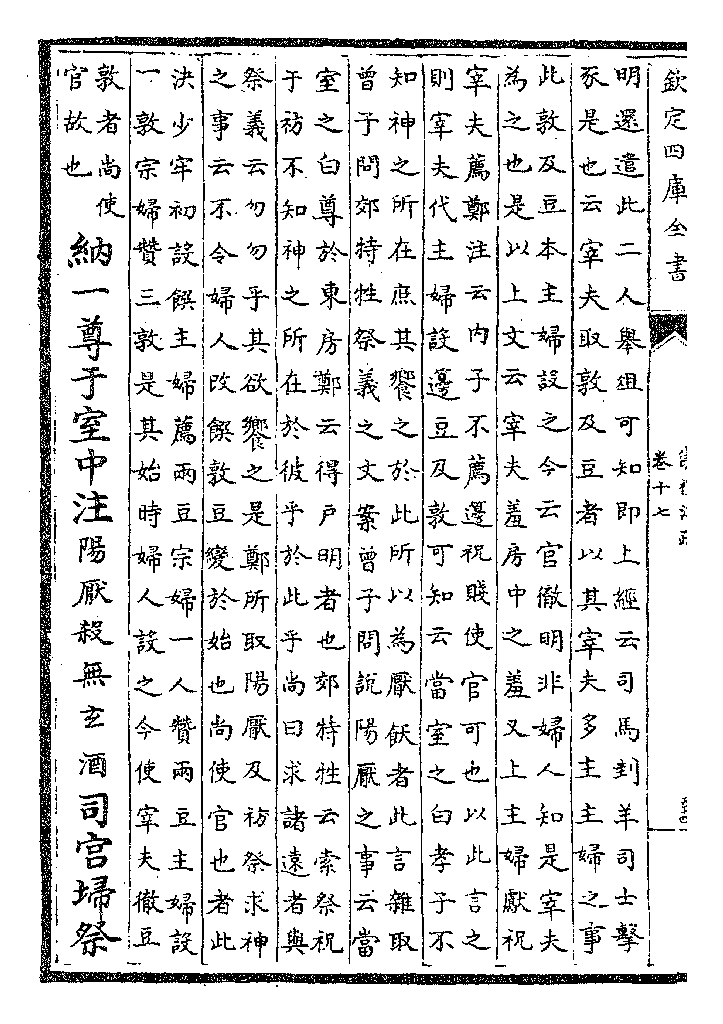 欽定四庫全書
卷十七
明還遣此二人舉俎可知即上經云司馬刲羊司士擊
豕是也云宰夫取敦及豆者以其宰夫多主主婦之事
此敦及豆本主婦設之今云官徹明非婦人知是宰夫
為之也是以上文云宰夫羞房中之羞又上主婦獻祝
宰夫薦鄭注云内子不薦邊祝賤使官可也以此言之
則宰夫代主婦設邊豆及敦可知云當室之白孝子不
知神之所在庶其饗之於此所以為厭飫者此言雜取
曾子問郊特牲祭義之文案曾子問說陽厭之事云當
室之白尊於東房鄭云得戶明者也郊特牲云索祭祝
于祊不知神之所在於彼乎於此乎尚曰求諸遠者與
祭義云勿勿乎其欲饗之是鄭所取陽厭及祊祭求神
之事云不令婦人改饌敦豆變於始也尚使官也者此
決少牢初設饌主婦薦兩豆宗婦一人贊兩豆主婦設
一敦宗婦贊三敦是其始時婦人設之今使宰夫徹豆
敦者尚使
官故也
納一尊于室中注陽厭殺無玄酒司宫埽祭